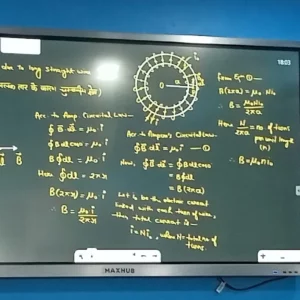 due to long straight wire
18:03
Acc. to Amp. Circuital Law—
∮ B⃗ dℓ⃗ = μ₀ i
∮ B dℓ cosθ = μ₀ i
B ∮ dℓ = μ₀ i
Here ∮ dℓ = 2πr
B(2πr) = μ₀ i
∴ B = μ₀ i / 2πr
Acc. to Ampere Circuital Law—
∮ B⃗ dℓ⃗ = μ₀ i —①
Now, ∮ B⃗ dℓ⃗ = ∮ B dℓ cosθ
= B ∮ dℓ
= B(2πr)
Let i₀ be the current
with each turn of wire,
then total current is—
i = N i₀, where N = total no. of turns.
from Eqn ①—
B(2πr) = μ₀ N i₀
∴ B = μ₀ N i₀ / 2πr
Here N / 2πr = no. of turns
per unit length
(n)
∴ B = μ₀ n i₀
MAXHUB